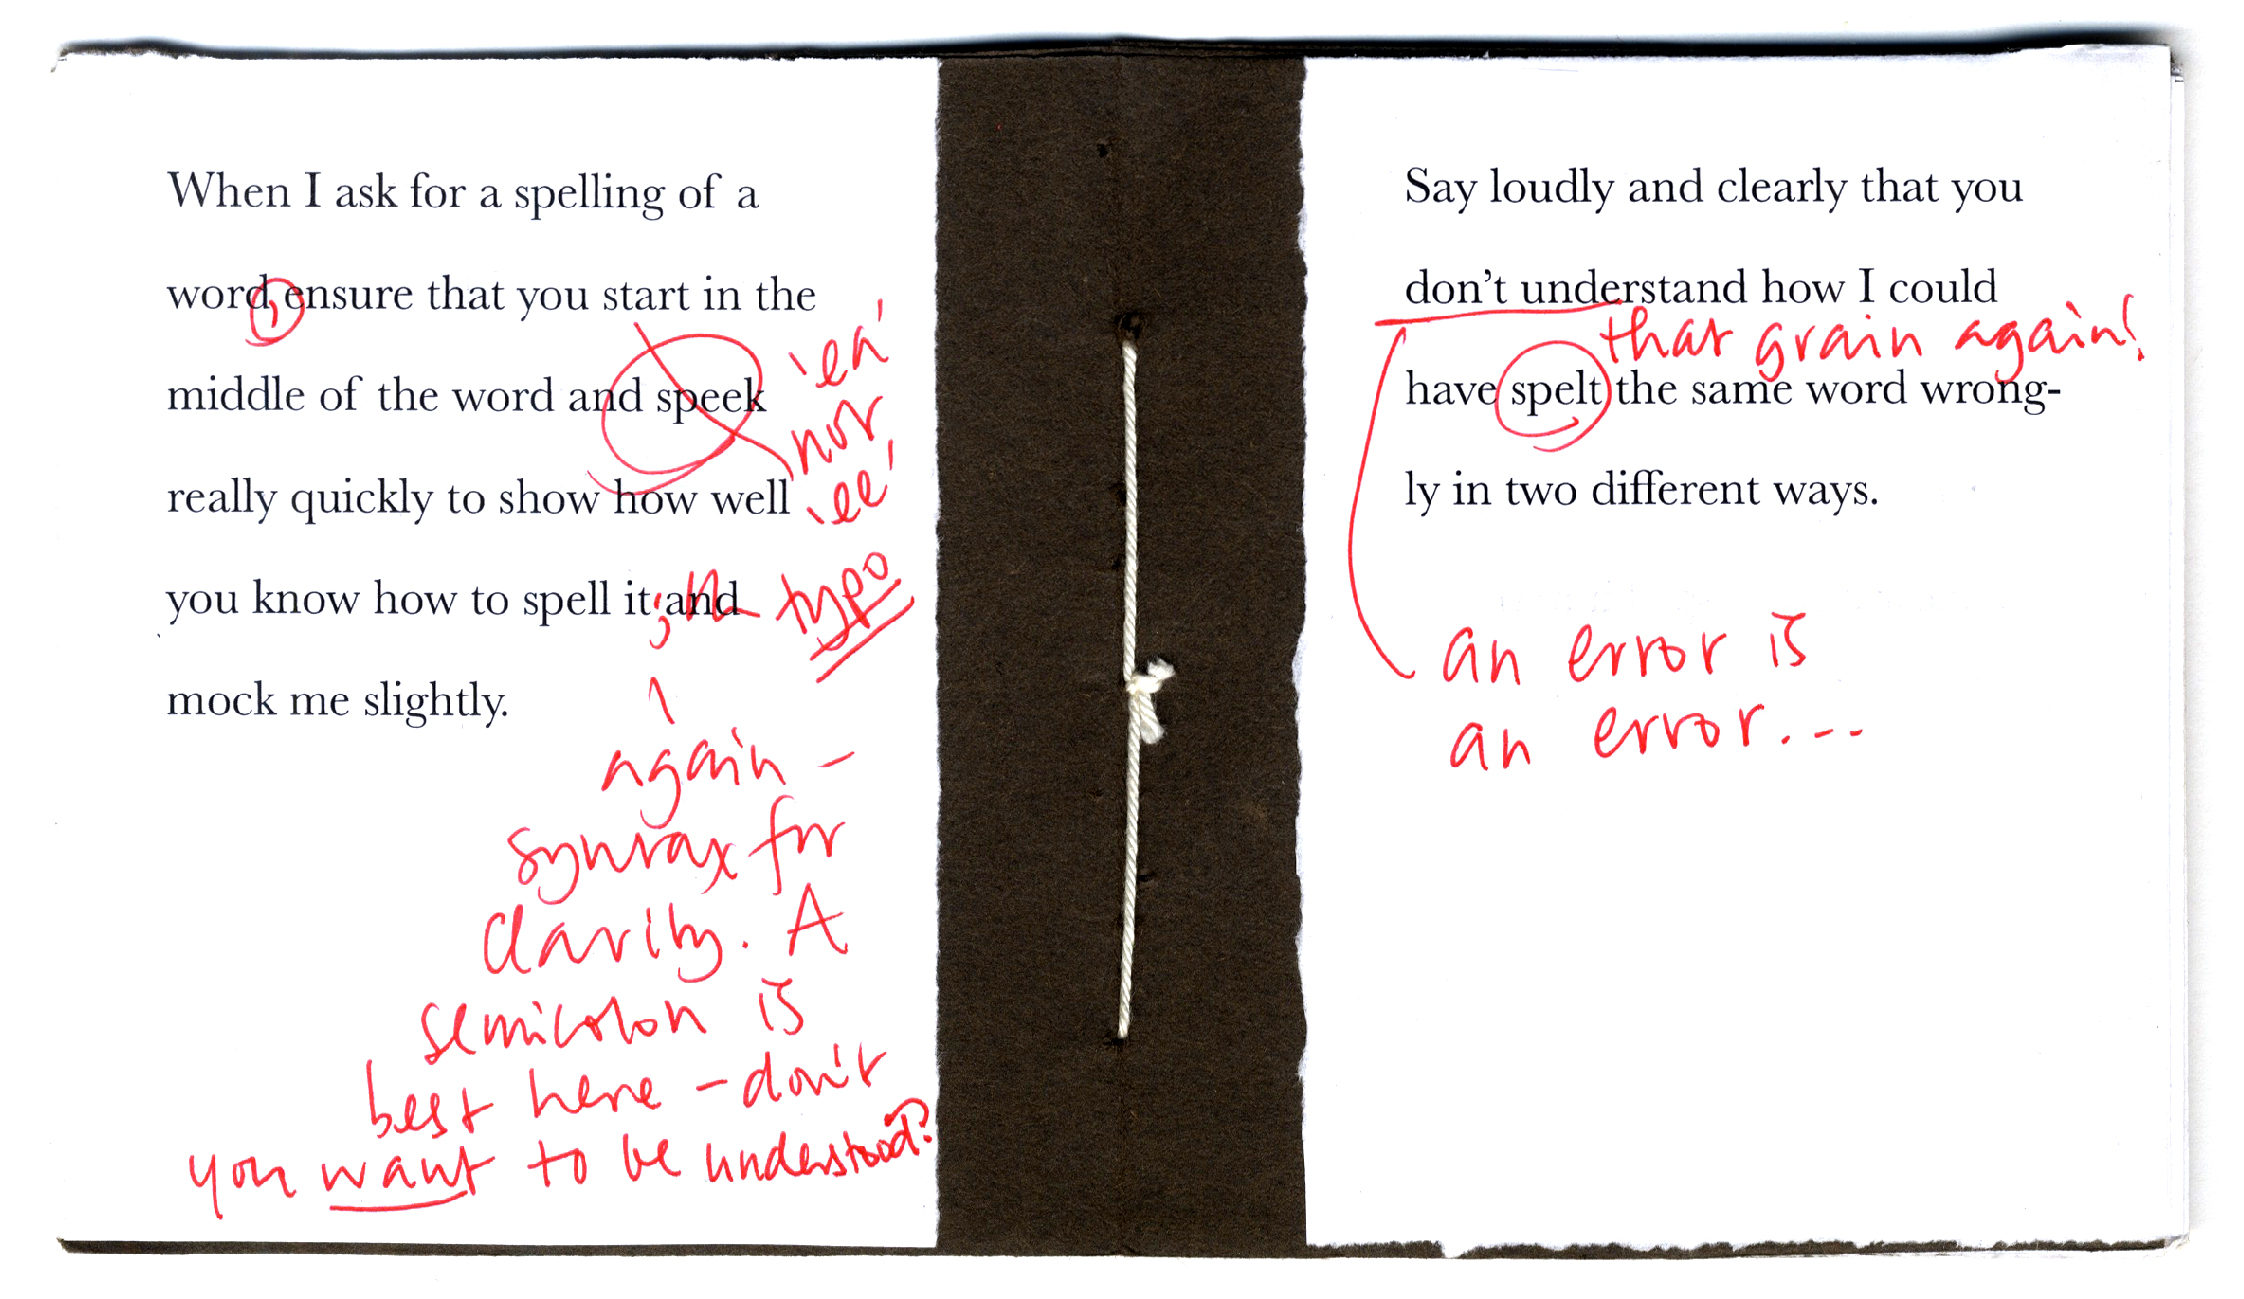 When I ask for a spelling of a
word, ensure that you start in the
middle of the word and speek
really quickly to show how well
you know how to spell it; and
mock me slightly.
'ea'
nor
'ee'
typo
again –
syntax for
clarity. A
semicolon is
best here – don't
you want to be understood?
Say loudly and clearly that you
don't understand how I could
that grain again!
have spelt the same word wrong-
ly in two different ways.
an error is
an error...